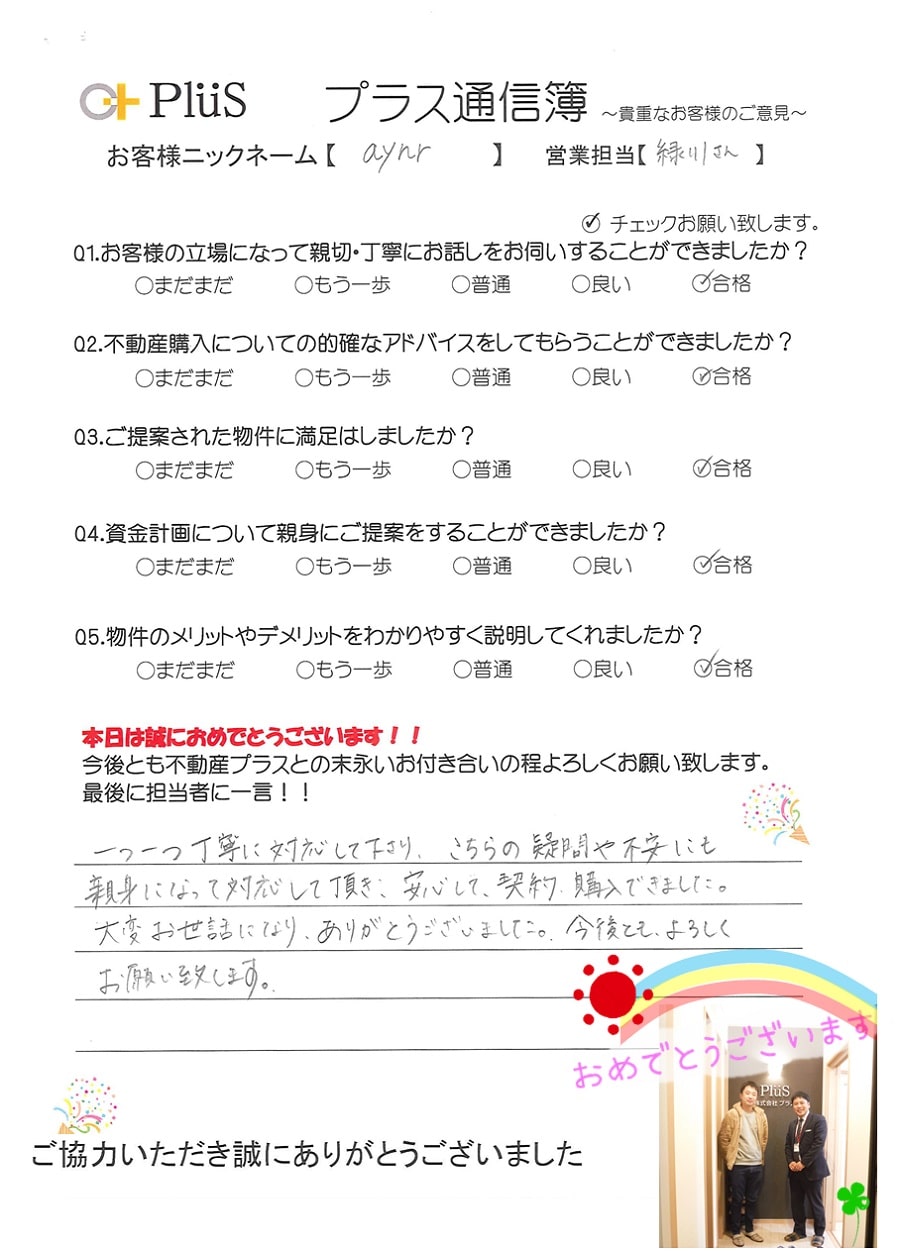 PlüS プラス通信簿 ～貴重なお客様のご意見～
お客様ニックネーム【 aynr 】 営業担当【 緑川さん 】
チェックお願い致します。
Q1.お客様の立場になって親切・丁寧にお話しをお伺いすることができましたか？
○まだまだ ○もう一歩 ○普通 ○良い ○合格
Q2.不動産購入についての的確なアドバイスをしてもらうことができましたか？
○まだまだ ○もう一歩 ○普通 ○良い ○合格
Q3.ご提案された物件に満足はしましたか？
○まだまだ ○もう一歩 ○普通 ○良い ○合格
Q4.資金計画について親身にご提案をすることができましたか？
○まだまだ ○もう一歩 ○普通 ○良い ○合格
Q5.物件のメリットやデメリットをわかりやすく説明してくれましたか？
○まだまだ ○もう一歩 ○普通 ○良い ○合格
本日は誠におめでとうございます！！
今後とも不動産プラスとの末永いお付き合いの程よろしくお願い致します。
最後に担当者に一言！！
一つ一つ丁寧に対応して下さり、こちらの疑問や不安にも
親身になって対応して頂き、安心して、契約、購入できました。
大変お世話になり、ありがとうございました。今後とも、よろしく
お願い致します。
おめでとうございます
PlüS
株式会社 プラ
ご協力いただき誠にありがとうございました